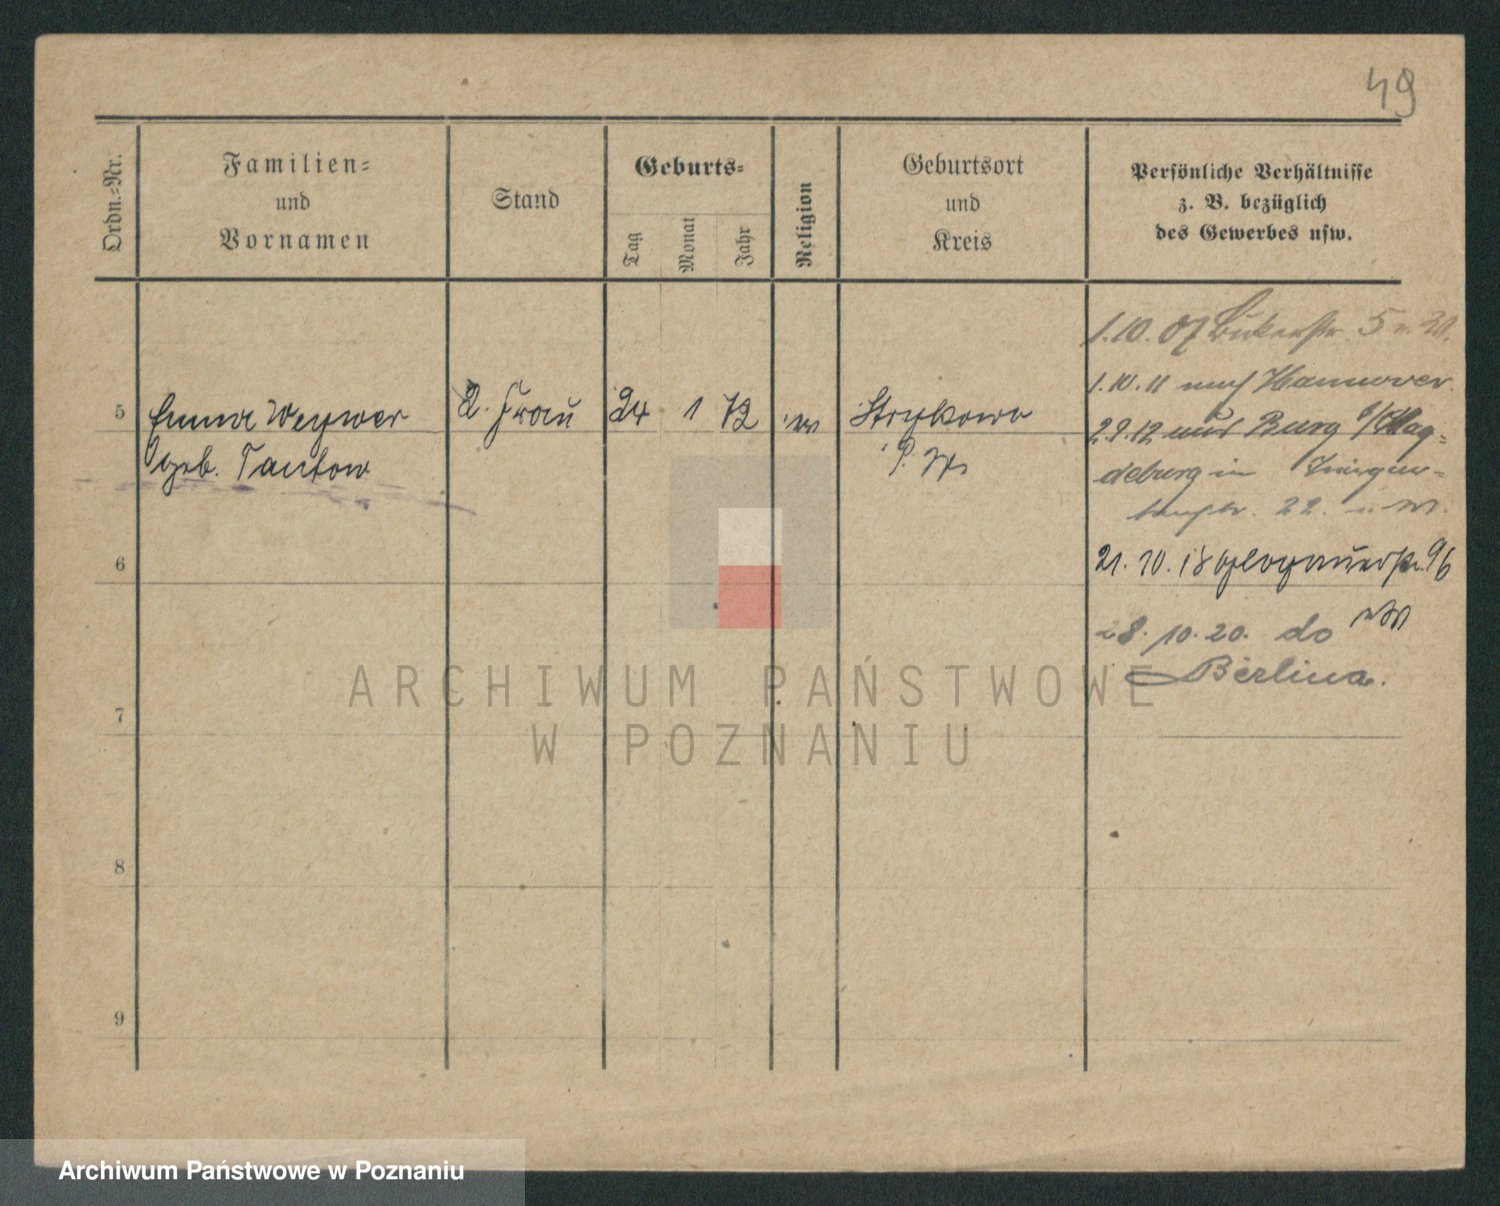 49
Ordn.=Nr.
Familien=
und
Vornamen
Stand
Geburts=
Tag
Monat
Jahr
Religion
Geburtsort
und
Kreis
Persönliche Verhältnisse
z. B. bezüglich
des Gewerbes usw.
1.10.07 Bukerstr. 5
1.10.11 nach Hannover.
5
Emma
2. Frau
24 1 72
Strykowo
29.12 aus Burg b/Mag=
geb. Tantow
P. W.
deburg in
22.
6
21.10.18 Glogauerstr. 96
28.10.20. do
Berlina.
7
8
9
ARCHIWUM PAŃSTWOWE
W POZNANIU
Archiwum Państwowe w Poznaniu